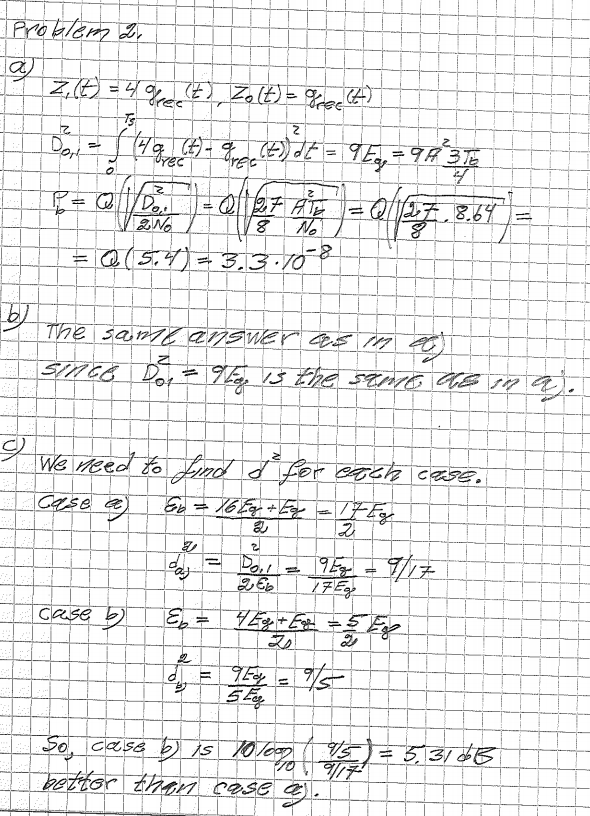 Problem 2.
a)
z₁(t) = 4 g_rec(t), z₀(t) = g_rec(t)
D²₀,₁ = ∫₀^Ts (4g_rec(t) - g_rec(t))² dt = 9E_g = 9A² 3T_b/4
P_b = Q(√(D²₀,₁/2N₀)) = Q(√(27/8 A²T_b/N₀)) = Q(√(27/8 · 8.64)) =
= Q(5.4) = 3.3·10⁻⁸
b)
The same answer as in a)
since D²₀,₁ = 9E_g is the same as in a).
c)
We need to find d² for each case.
Case a) ε_b = (16E_g + E_g)/2 = 17/2 E_g
d²_a) = D²₀,₁/2ε_b = 9E_g/17E_g = 9/17
Case b) ε_b = (4E_g + E_g)/2 = 5/2 E_g
d²_b) = 9E_g/5E_g = 9/5
So, case b) is 10 log₁₀((9/5)/(9/17)) = 5.31 dB
better than case a).